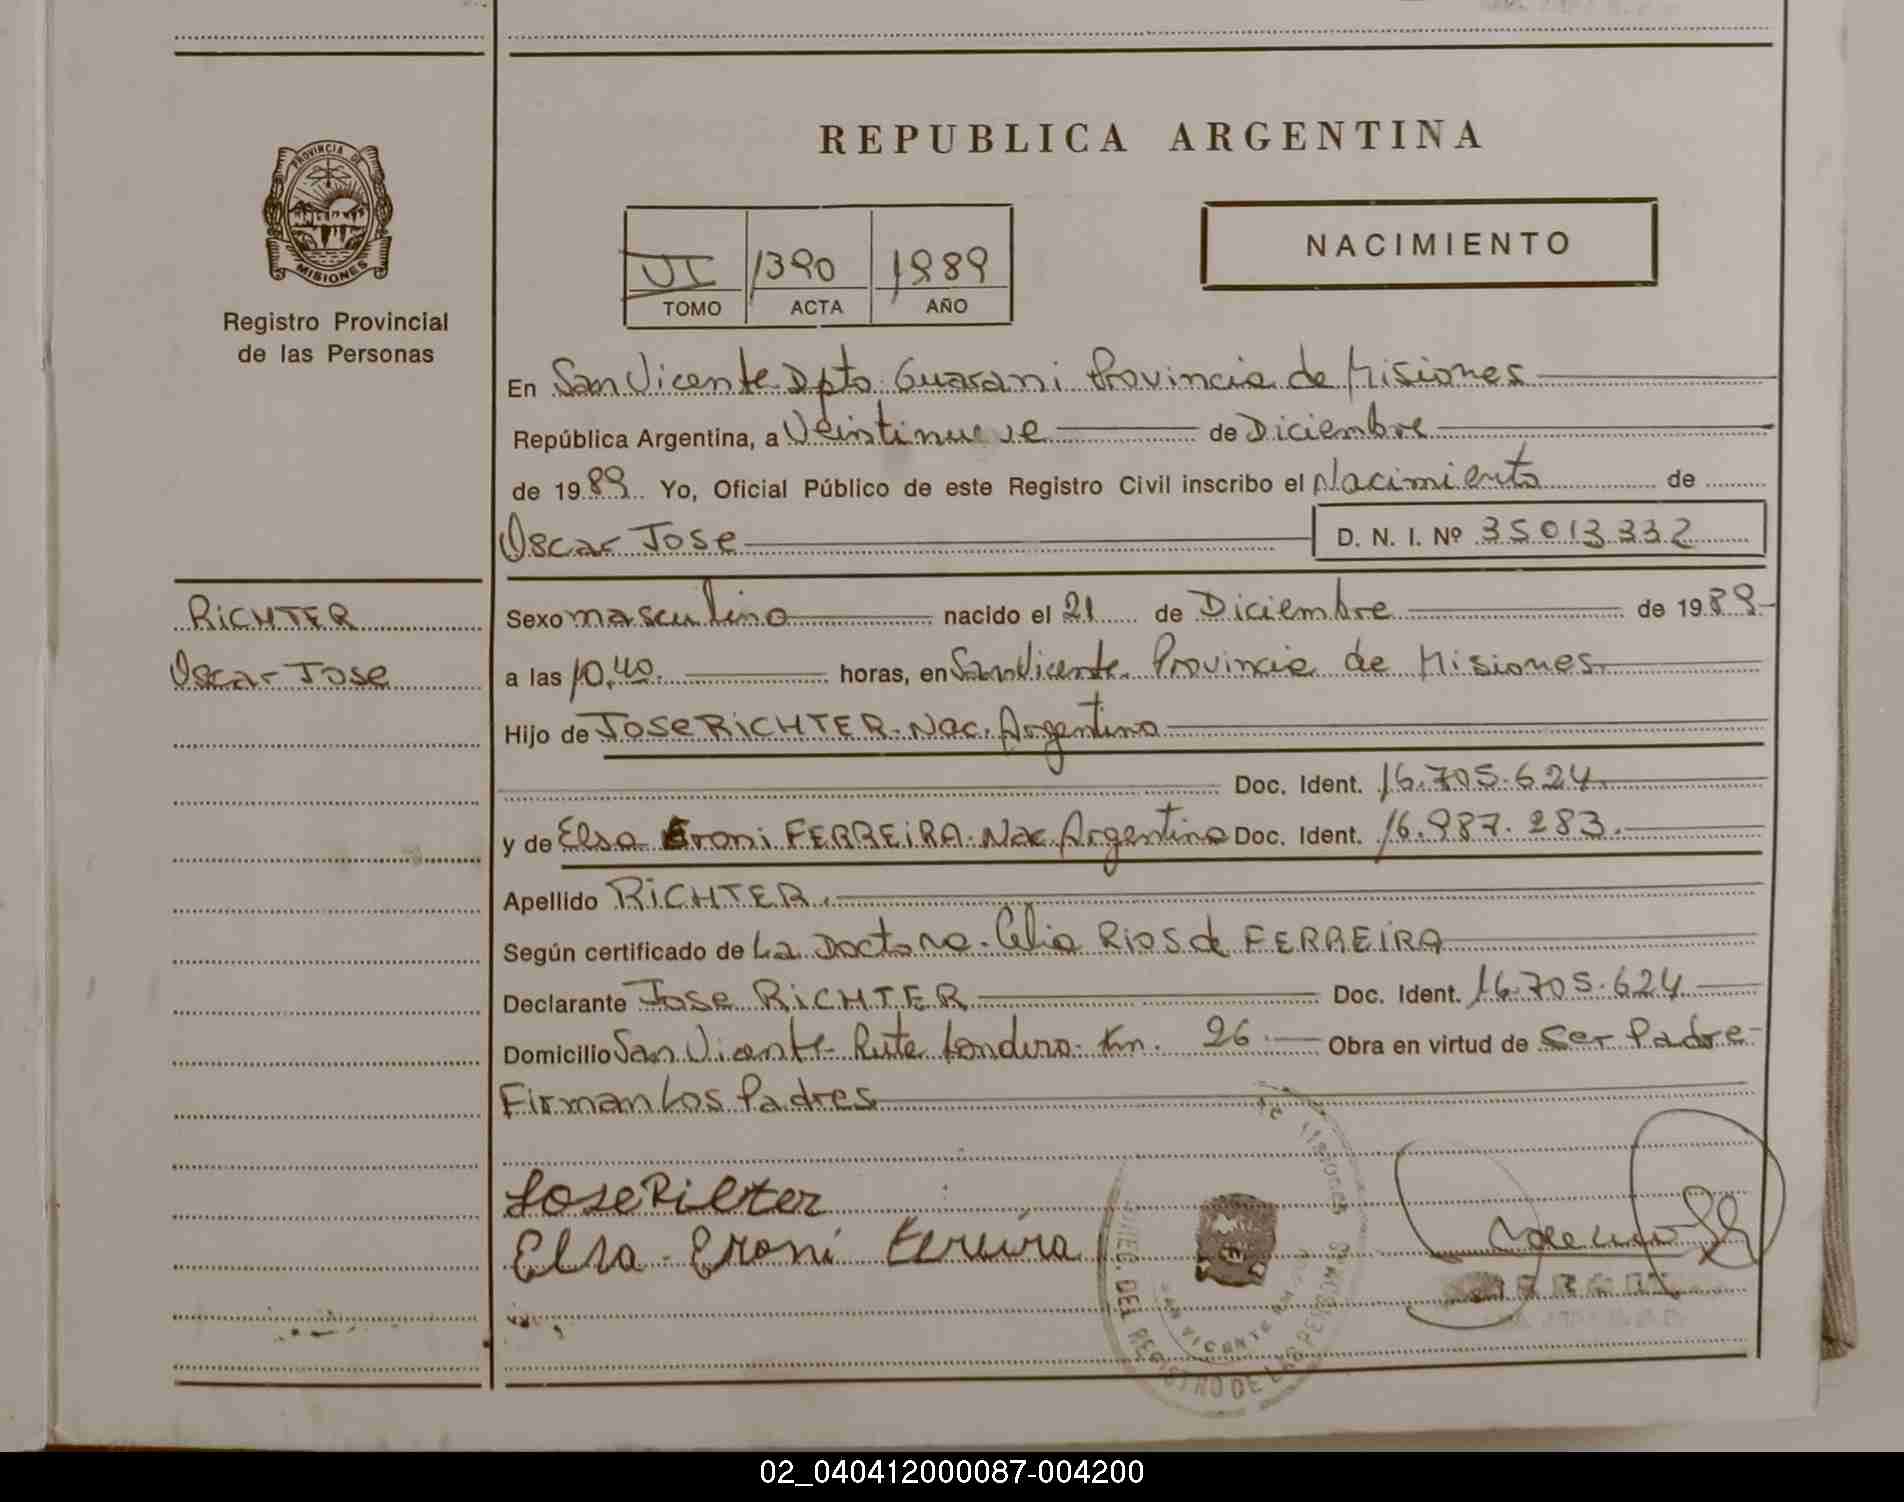 REPUBLICA ARGENTINA
PROVINCIA DE MISIONES
Registro Provincial
de las Personas
VI 1390 1989
TOMO ACTA AÑO
NACIMIENTO
En San Vicente Dpto Guarani Provincia de Misiones
República Argentina, a Veintinueve de Diciembre
de 1989 Yo, Oficial Público de este Registro Civil inscribo el Nacimiento de
Oscar Jose D. N. I. Nº 35013332
RICHTER
Oscar Jose
Sexo masculino nacido el 21 de Diciembre de 1989
a las 10,40. horas, en San Vicente. Provincia de Misiones.
Hijo de Jose RICHTER. Nac. Argentino
Doc. Ident. 16.705.624.
y de Elsa Eroni FERREIRA. Nac. Argentina Doc. Ident. 16.987.283.
Apellido RICHTER.
Según certificado de La Doctora. Celia RIOS de FERREIRA
Declarante Jose RICHTER Doc. Ident. 16.705.624
Domicilio San Vicente- Ruta Km. 26 Obra en virtud de Ser Padre
Firman Los Padres
Jose Richter
Elsa Eroni Fereira
DEL REGISTRO DE LAS PERSONAS
SAN VICENTE
02_040412000087-004200